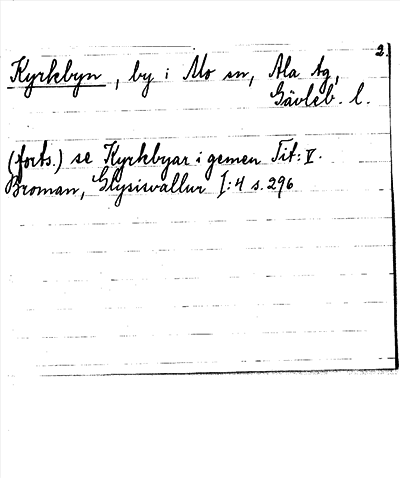 2.
Kyrkbyn, by i Mo sn, Ala tg,
Gävleb. l.
(forts.) se Kyrkbyar i gemen Tit: V.
Broman, Glysisvallur I:4 s. 296